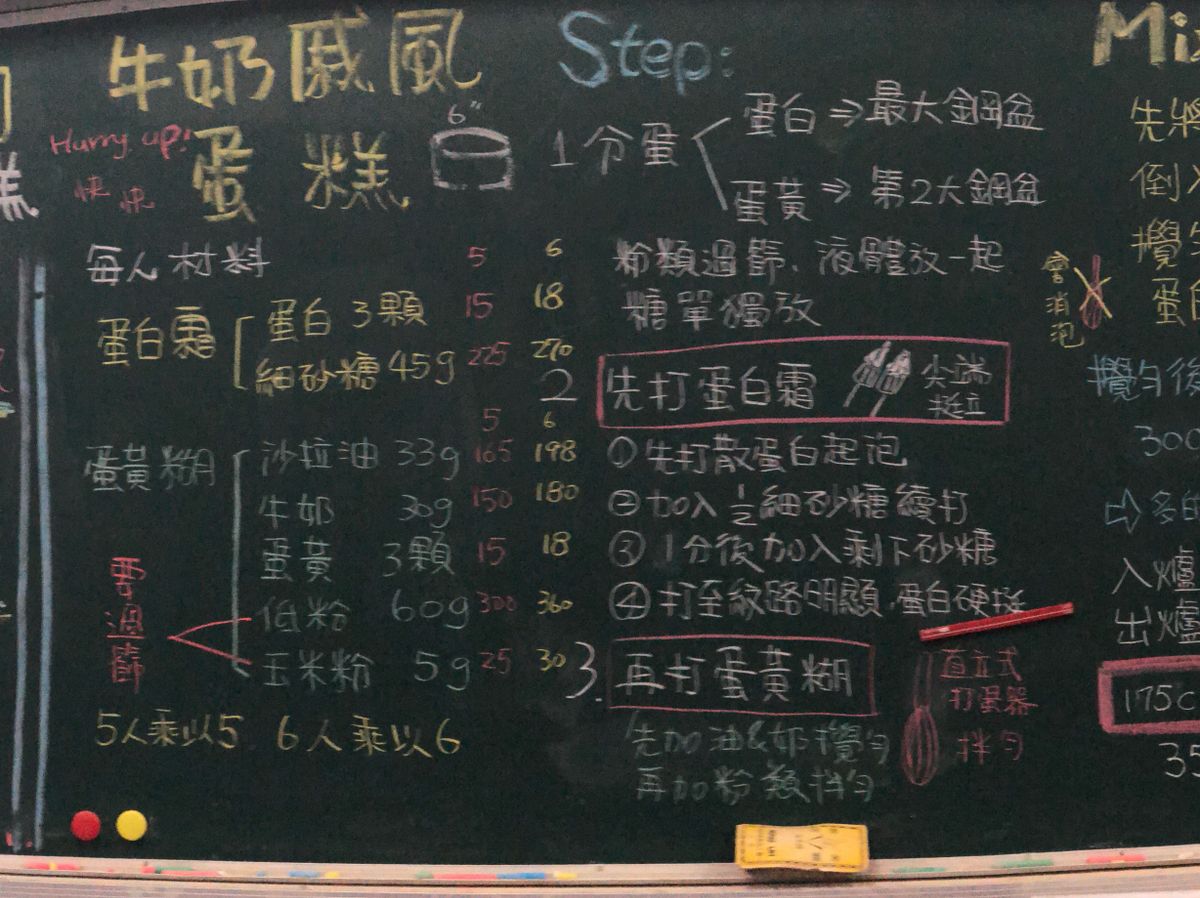 牛奶戚風
蛋糕
Hurry up!
快 快
6"
每人材料 5 6
蛋白霜 蛋白 3顆 15 18
細砂糖 45g 225 270
5 6
蛋黃糊 沙拉油 33g 165 198
牛奶 30g 150 180
蛋黃 3顆 15 18
低粉 60g 300 360
玉米粉 5g 25 30
要過篩
5人乘以5 6人乘以6
Step:
1 分蛋 蛋白 ⇒ 最大鋼盆
蛋黃 ⇒ 第2大鋼盆
粉類過篩、液體放一起
糖單獨放
2 先打蛋白霜 尖端
挺立
①先打散蛋白起泡
②加入½細砂糖續打
③1分後加入剩下砂糖
④打至紋路明顯,蛋白硬挺
3. 再打蛋黃糊
直立式
打蛋器
拌勻
先加油&奶攪勻
再加粉類拌勻
Mi
先將
倒入
攪勻
蛋白
會消泡
攪勻後
300
⇨多的
入爐
出爐
175C
35